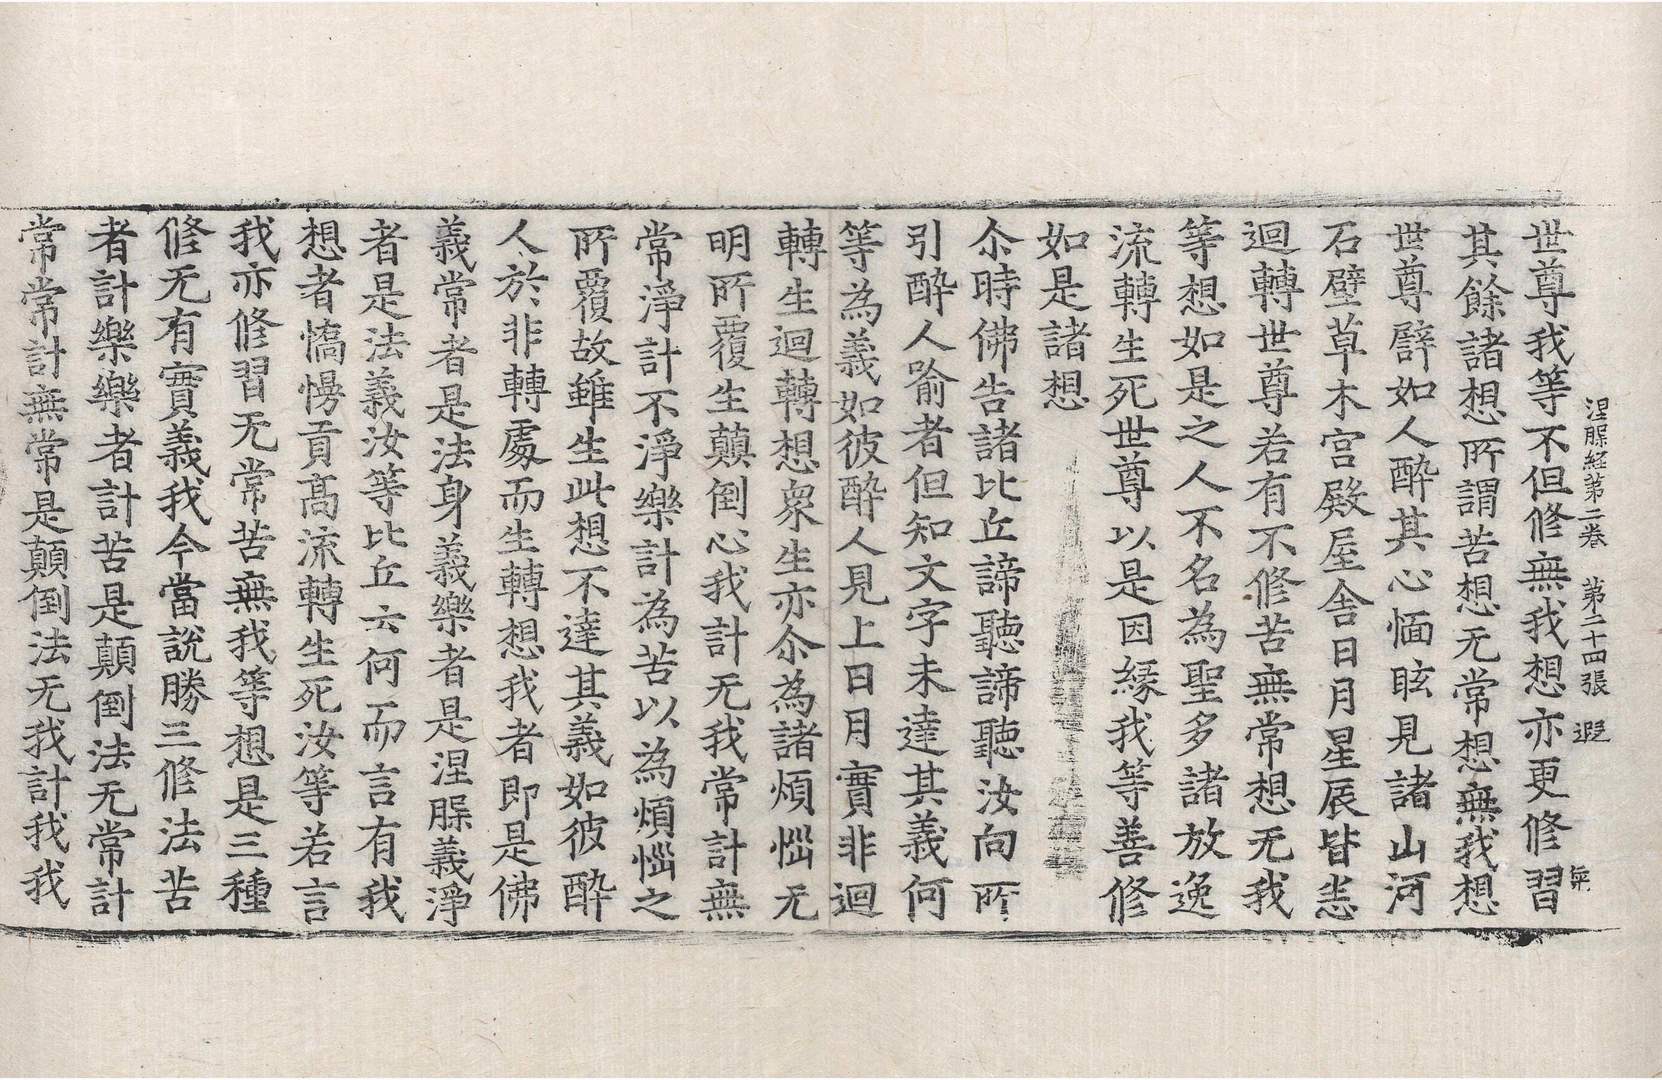 涅槃経第二卷　第二十四張　遐
世尊我等不但修無我想亦更修習
其餘諸想所謂苦想无常想無我想
世尊譬如人醉其心愐眩見諸山河
石壁草木宮殿屋舍日月星辰皆悉
迴轉世尊若有不修苦無常想无我
等想如是之人不名為聖多諸放逸
流轉生死世尊以是因緣我等善修
如是諸想
尒時佛告諸比丘諦聽諦聽汝向所
引醉人喻者但知文字未達其義何
等為義如彼醉人見上日月實非迴
轉生迴轉想衆生亦尒為諸煩惱无
明所覆生顛倒心我計无我常計無
常淨計不淨樂計為苦以為煩惱之
所覆故雖生此想不達其義如彼醉
人於非轉處而生轉想我者即是佛
義常者是法身義樂者是涅槃義淨
者是法義汝等比丘云何而言有我
想者憍慢貢高流轉生死汝等若言
我亦修習无常苦無我等想是三種
修无有實義我今當說勝三修法苦
者計樂樂者計苦是顛倒法无常計
常常計無常是顛倒法无我計我我